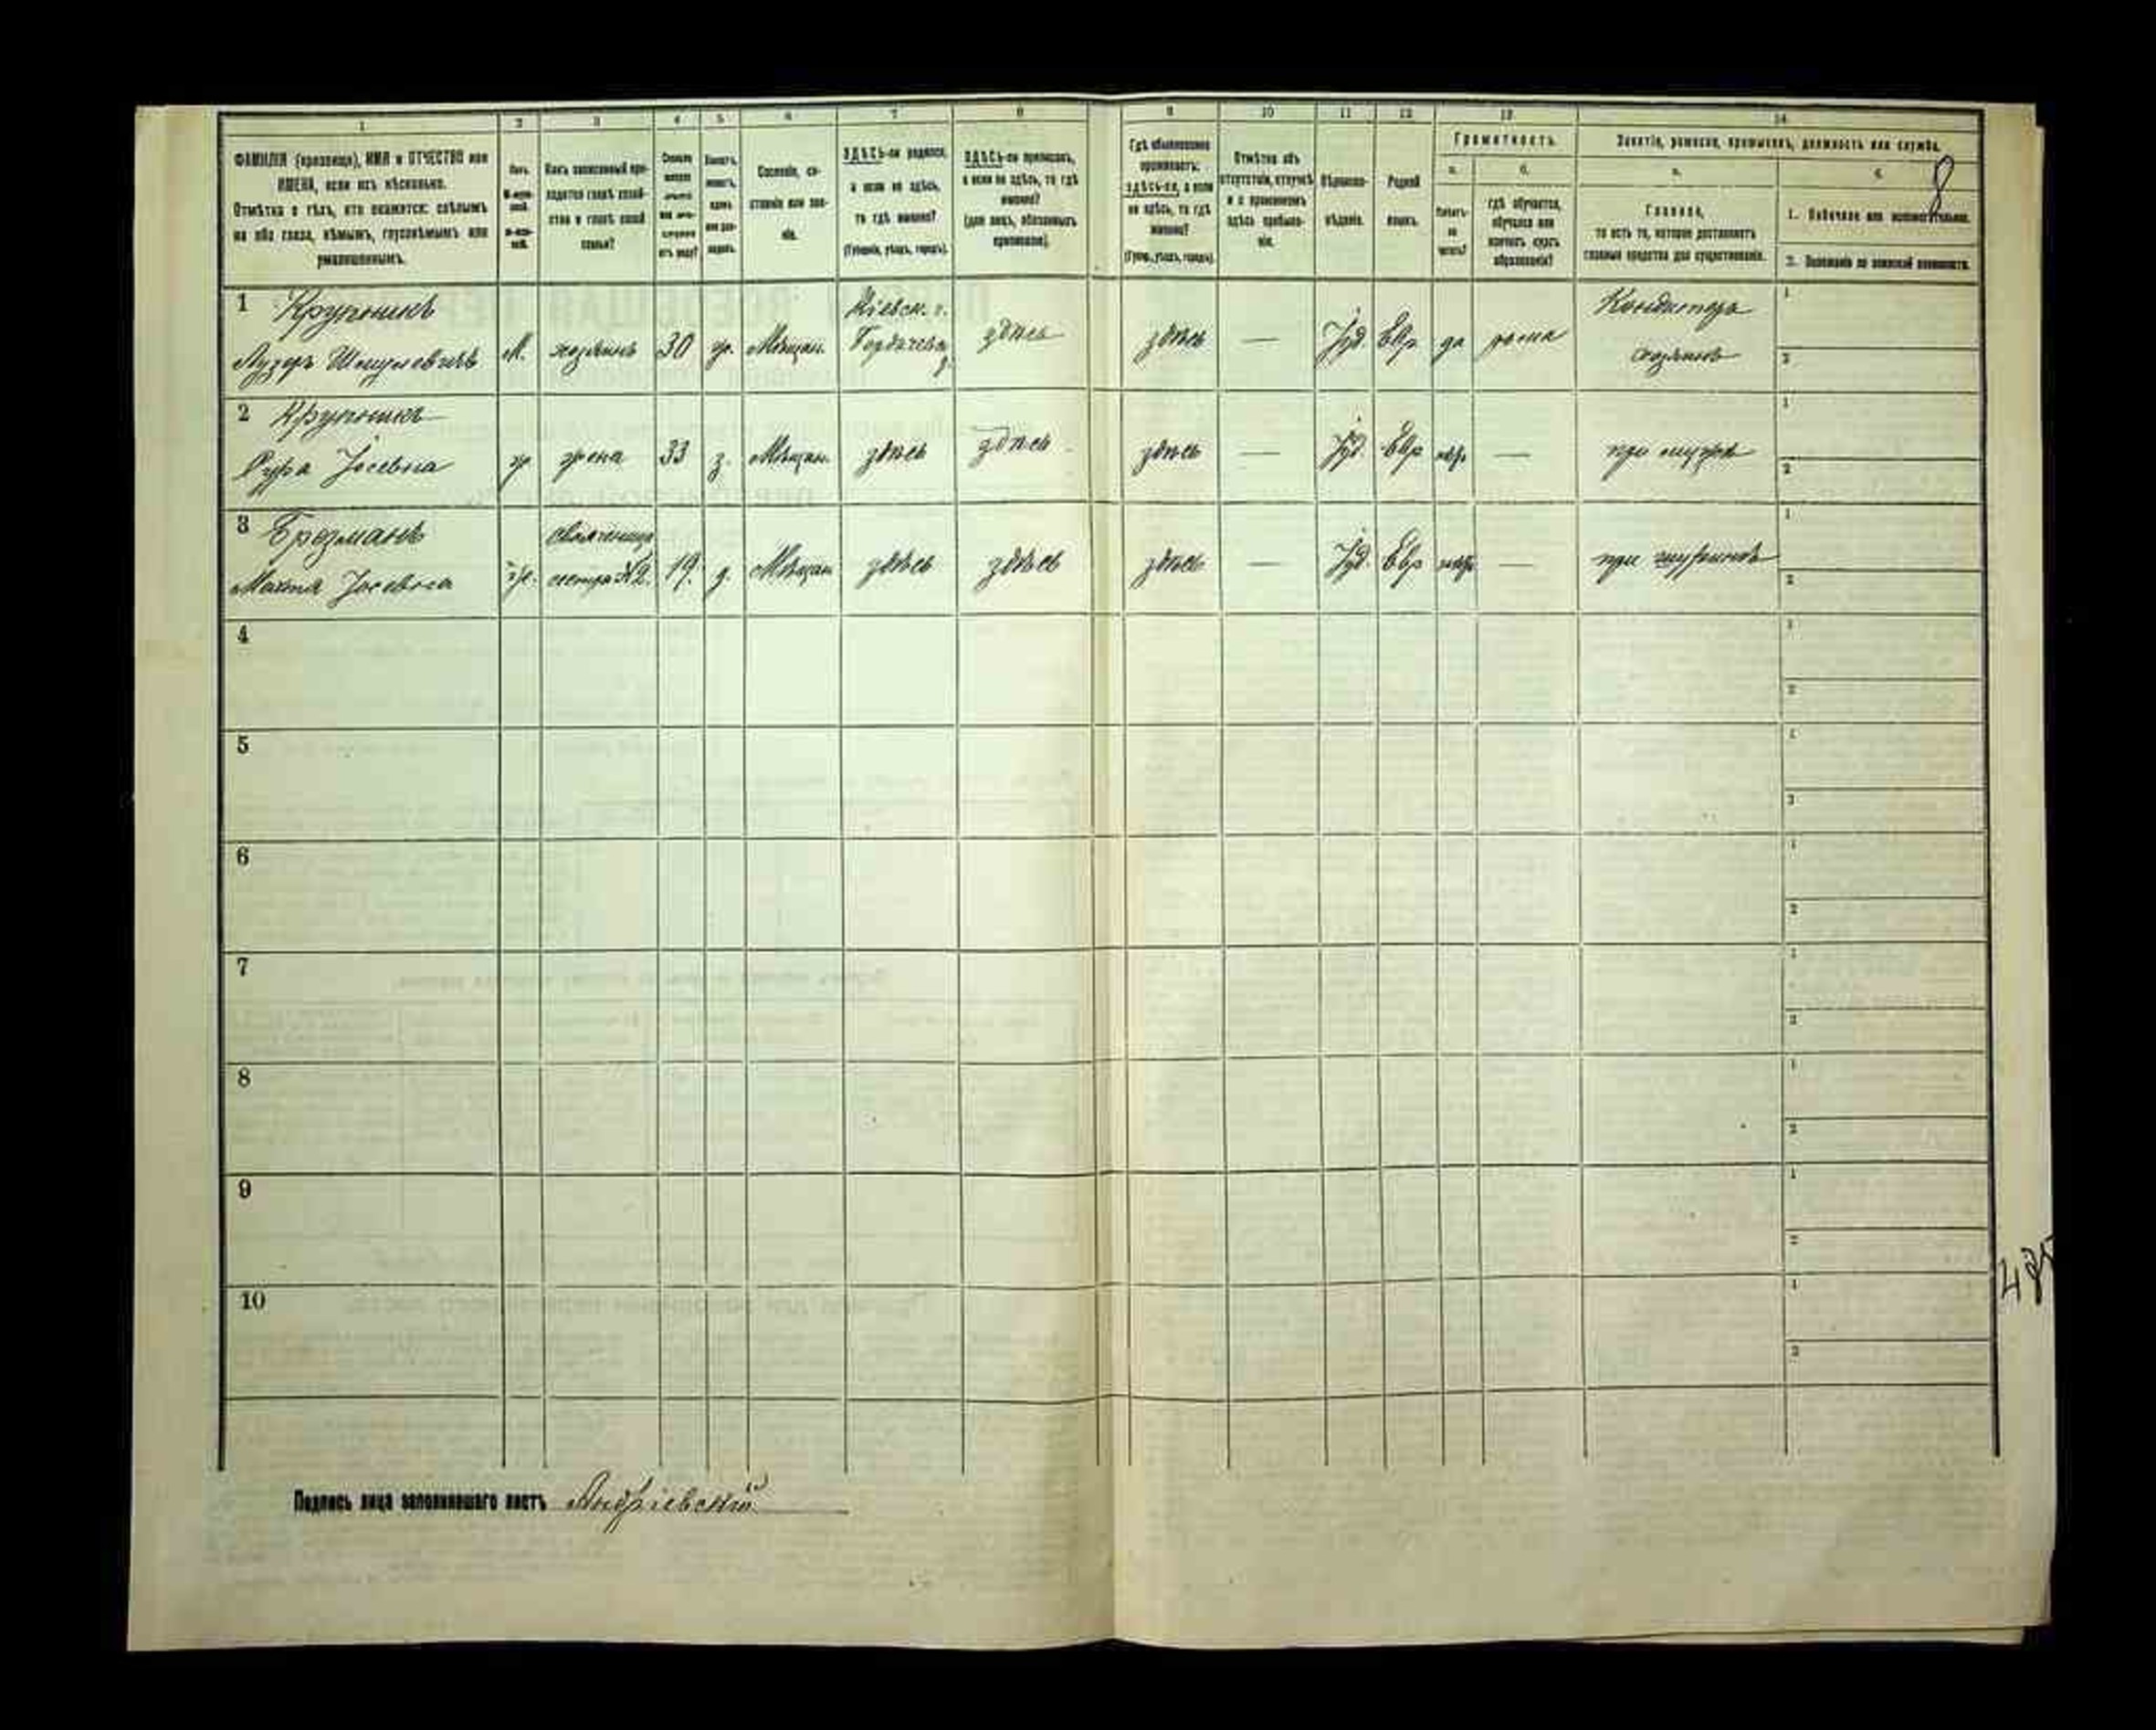 1 2 3 4 5 6 7 8 9 10 11 12 13 14
ФАМИЛІЯ (прозвище), ИМЯ и ОТЧЕСТВО или
ИМЕНА, если ихъ нѣсколько.
Отмѣтка о тѣхъ, кто окажется: слѣпымъ
на оба глаза, нѣмымъ, глухонѣмымъ или
умалишеннымъ.
Полъ.
Какъ записанный при-
ходится главѣ хозяй-
ства и главѣ своей
семьи?
Сословіе, со-
стояніе или зва-
ніе.
ЗДѢСЬ-ли родился,
а если не здѣсь,
то гдѣ именно?
(Губернія, уѣздъ, городъ).
ЗДѢСЬ-ли приписанъ,
а если не здѣсь, то гдѣ
именно?
(для лицъ, обязанныхъ
припискою).
Гдѣ обыкновенно
проживаетъ:
здѣсь-ли, а если
не здѣсь, то гдѣ
именно?
(Губер., уѣздъ, городъ).
Отмѣтка объ
отсутствіи, отлучкѣ
и о временномъ
здѣсь пребыва-
ніи.
Вѣроиспо-
вѣданіе.
Родной
языкъ.
Грамотность.
а.
Умѣетъ-
ли
читать?
б.
гдѣ обучается,
обучался или
кончилъ курсъ
образованія?
Занятіе, ремесло, промыселъ, должность или служба.
8
а.
Главное,
то есть то, которое доставляетъ
главныя средства для существованія.
б.
1. Побочное или вспомогательное.
2. Положеніе по воинской повинности.
1 Крупникъ
Лузеръ Шмулевичъ
М. хозяинъ 30 ж. Мѣщан.
Кіевск. г.
Бердичевъ
здѣсь здѣсь — Іуд. Евр да дома
Кондитеръ
хозяинъ
1
2
2 Крупникъ
Сура Іосевна
ж жена 33 з. Мѣщан. здѣсь здѣсь здѣсь — Іуд. Евр нѣт — при мужѣ
1
2
3 Брезманъ
Малка Іосевна
ж.
своячиница
сестра №2.
19. д. Мѣщан здѣсь здѣсь здѣсь — Іуд. Евр нѣт — при шуринѣ
1
2
4
1
2
5
1
2
6
1
2
7
1
2
8
1
2
9
1
2
10
1
2
Подпись лица заполнившаго листъ Андріевскій